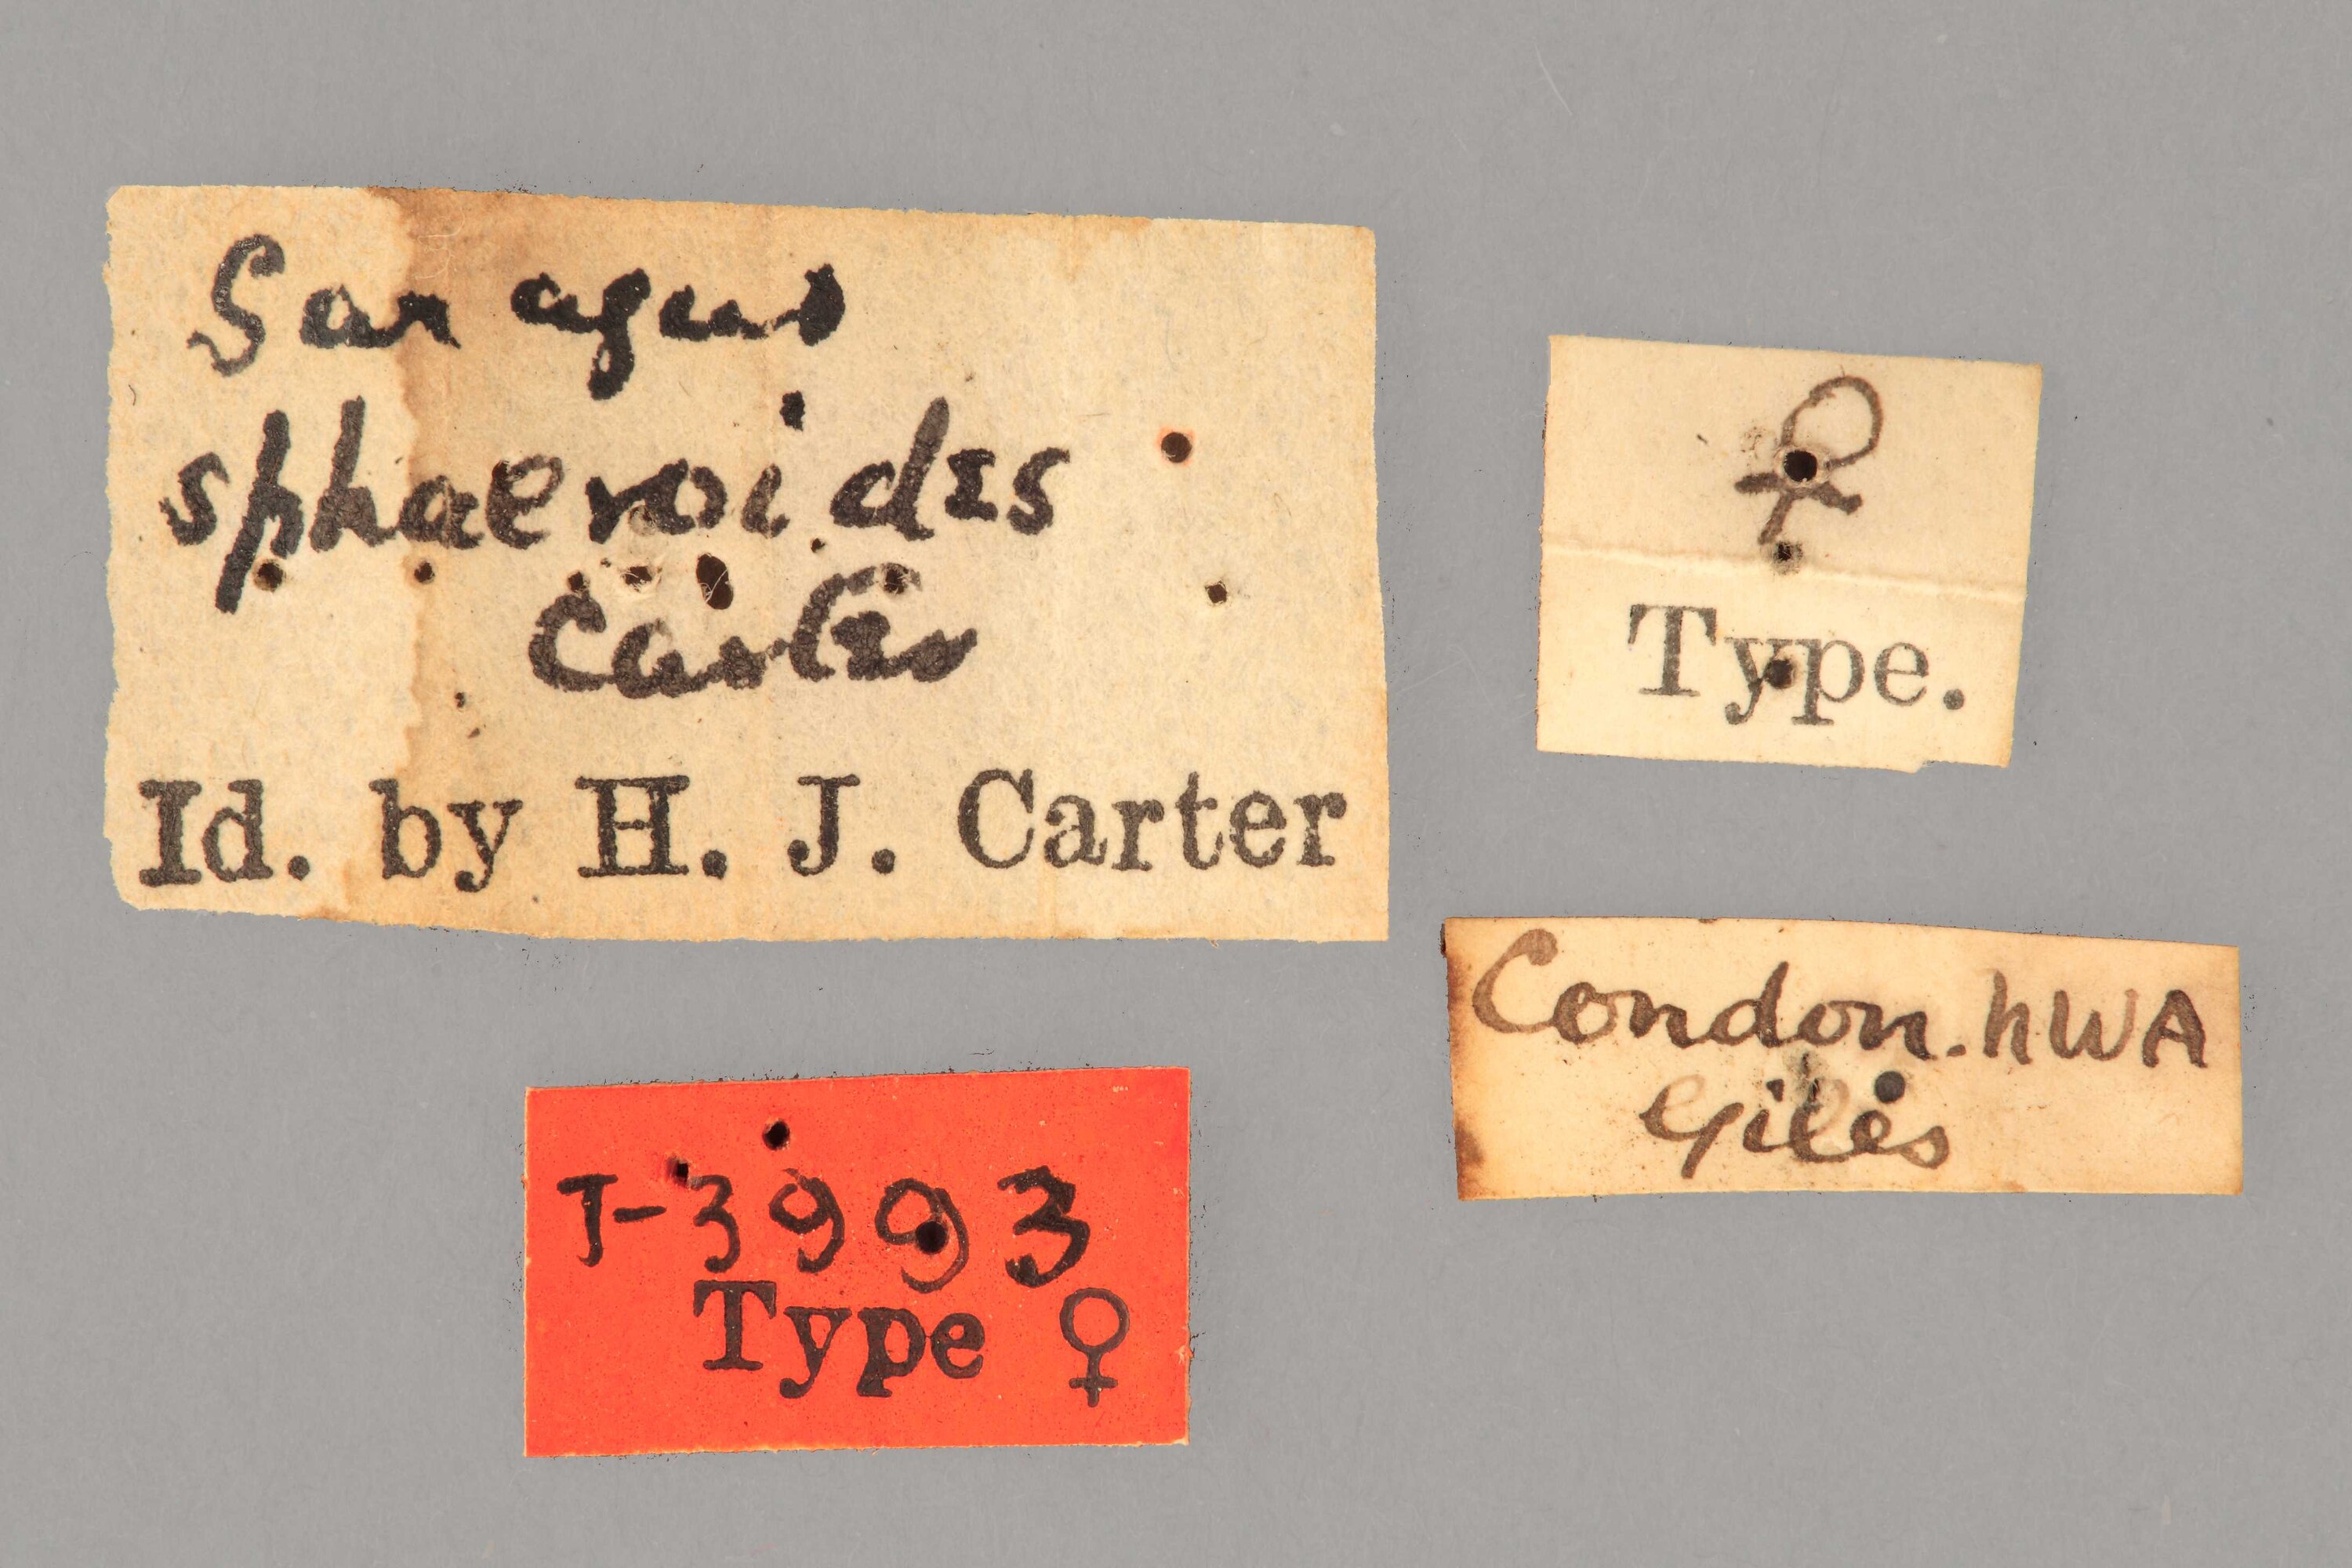 Saragus
sphaeroides
Carter
Id. by H. J. Carter
♀
Type.
Condon. NWA
Giles
T-3993
Type ♀